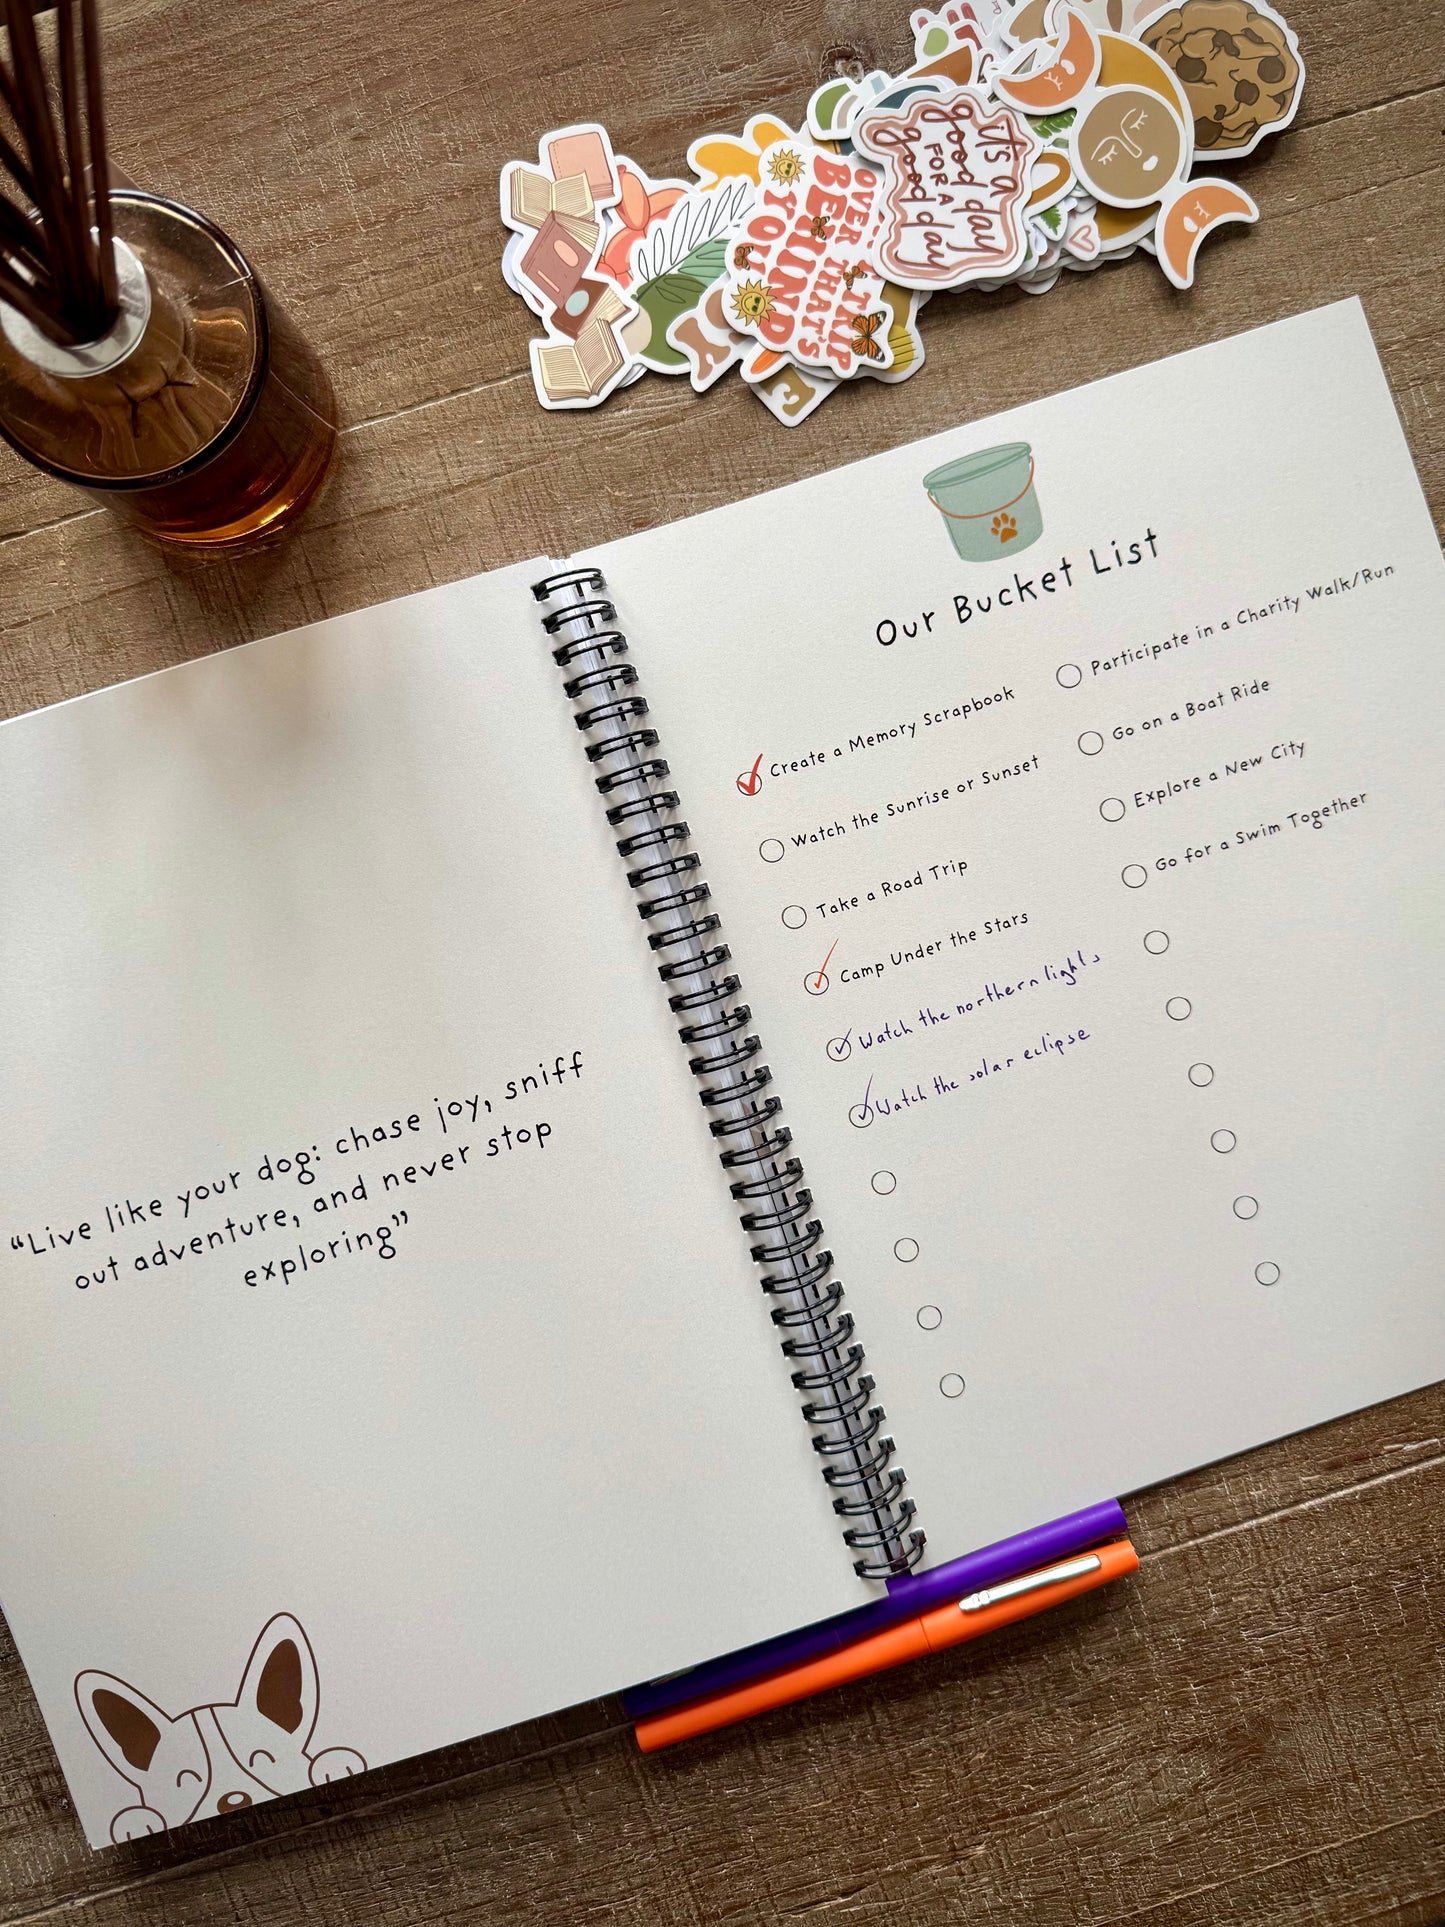 it's a
good day
FOR A
good day
OVER
BEHIND
YOU
TRIP
OVER THAT'S
Our Bucket List
Create a Memory Scrapbook
Watch the Sunrise or Sunset
Take a Road Trip
Camp Under the Stars
Watch the northern lights
Watch the solar eclipse
Participate in a Charity Walk/Run
Go on a Boat Ride
Explore a New City
Go for a Swim Together
“Live like your dog: chase joy, sniff
out adventure, and never stop
exploring”